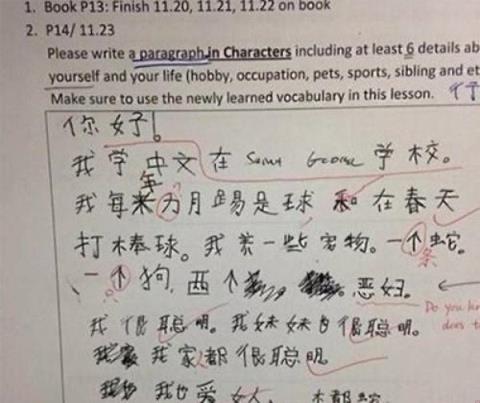 1. Book P13: Finish 11.20, 11.21, 11.22 on book
2. P14/ 11.23
Please write a paragraph in Characters including at least 6 details ab
yourself and your life (hobby, occupation, pets, sports, sibling and et
Make sure to use the newly learned vocabulary in this lesson.
你好!
我学中文在 George 学校。
年
我每为月踢是球和在春天
打棒球。我养一些宠物。一个蛇。
条
一个狗,西个恶妇。
Do you kn
does t
我很聪明。我妹妹也很聪明。
我家都很聪明。
我也爱女人